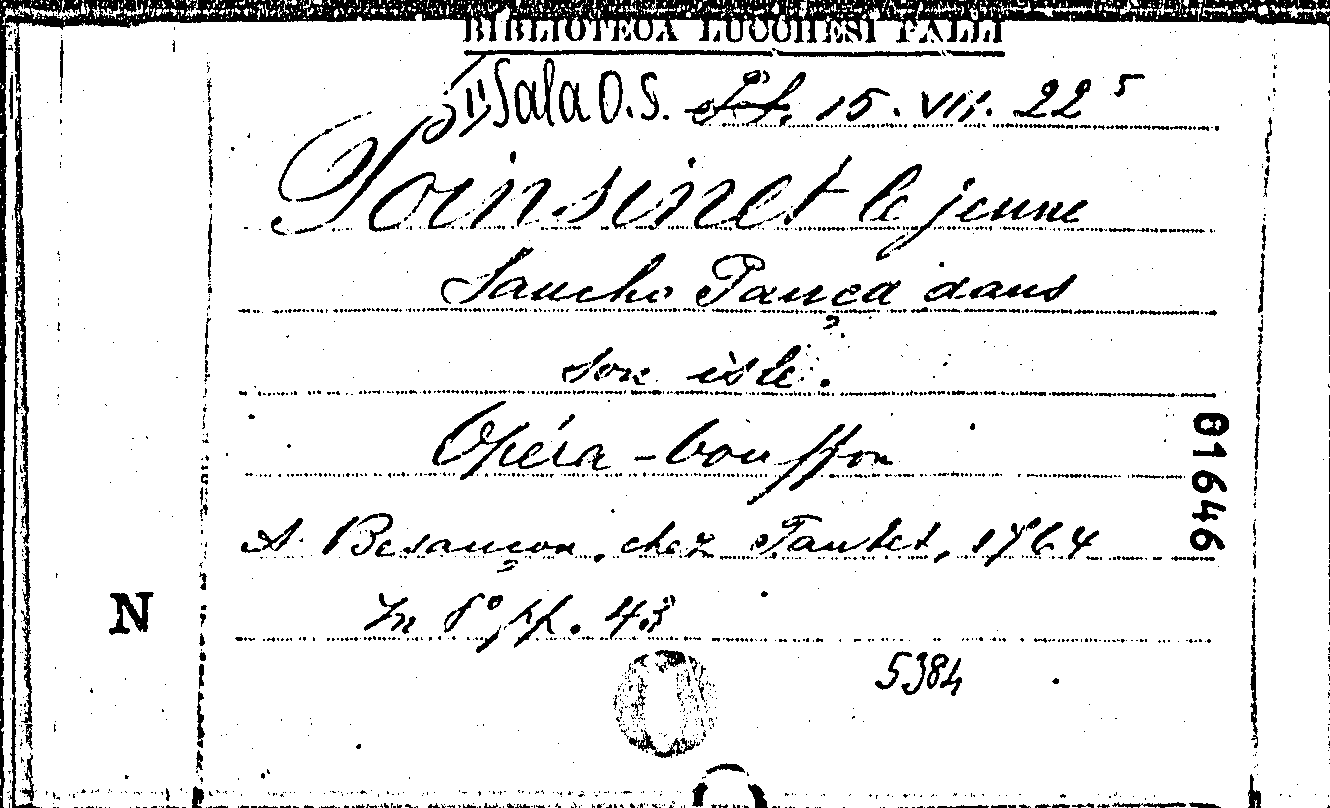 BIBLIOTECA LUCCHESI PALLI
IIª Sala O.S. 15. VII. 22 5
Poinsinet le jeune
Sancho Pança dans
son isle.
Opéra-bouffon
A Besançon, chez Fantet, 1764
In 8° pp. 43
5384
N
01646